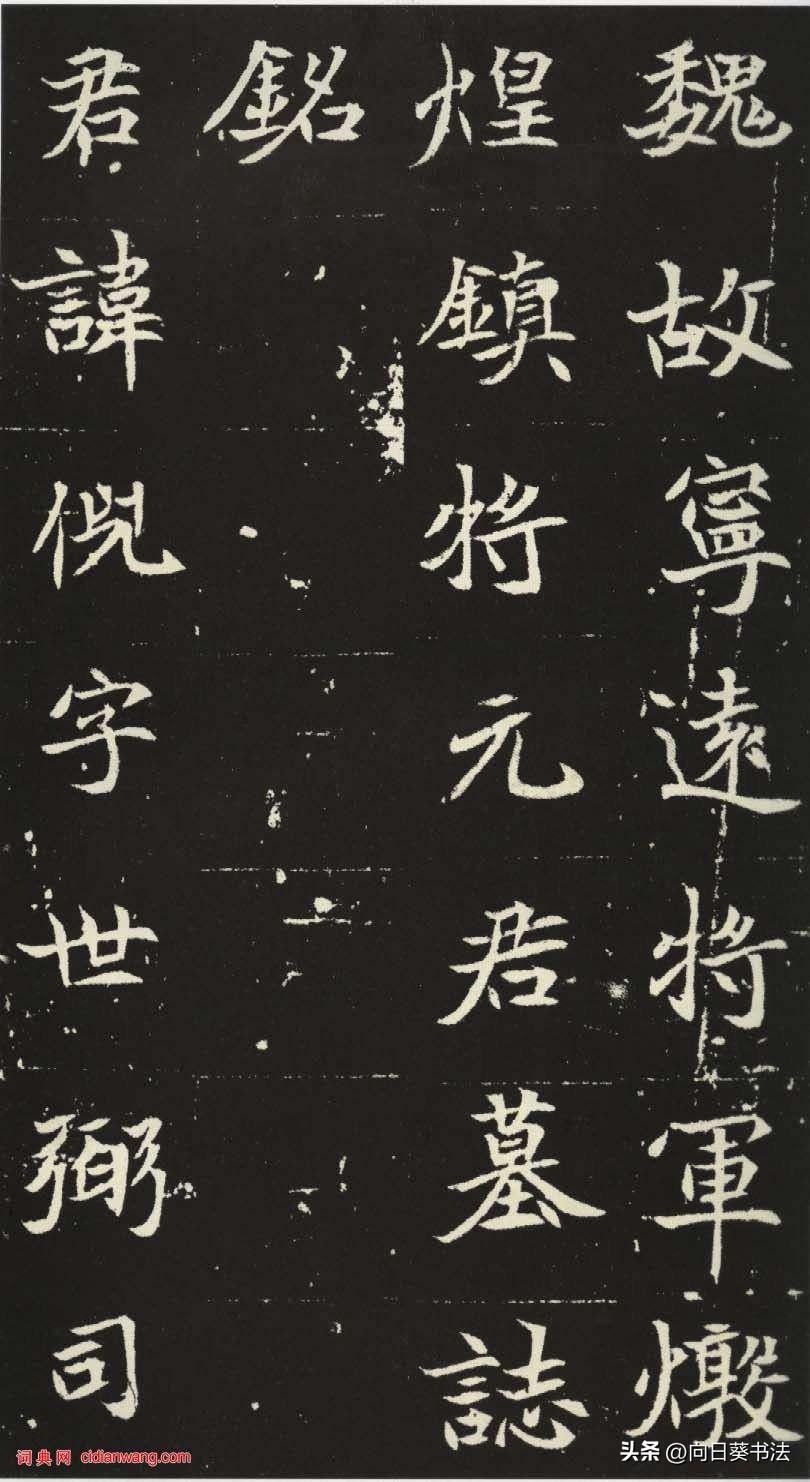 魏故寧遠將軍燉
煌鎮將元君墓誌
銘
君諱倪字世弼司
词典网 cidianwang.com
头条 @向日葵书法